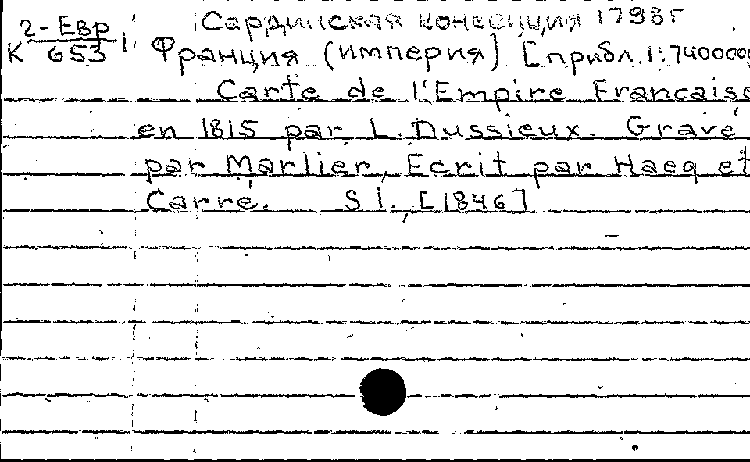 Сардинская конвенция 1798г
К 2-Евр/653 Франция (империя) [прибл. 1:7400000
Carte de l'Empire Francaise
en 1815 par L. Dussieux. Gravé
par Marlier, Ecrit par Hacq et
Carré. S l., [1846]